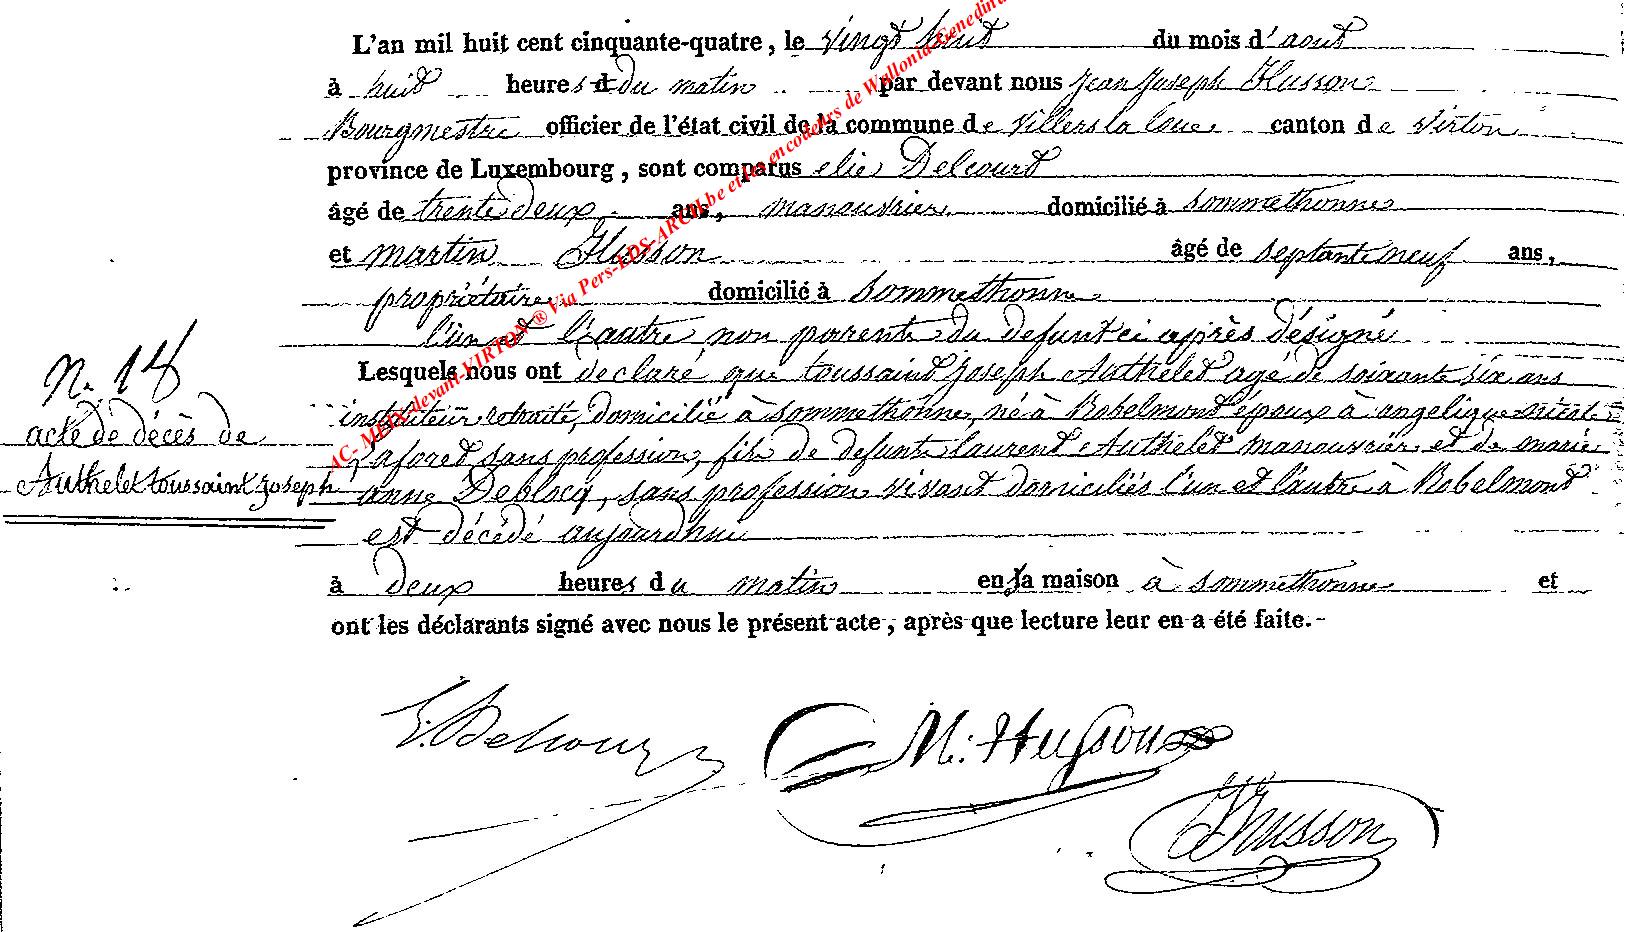 L'an mil huit cent cinquante-quatre, le vingt huit du mois d'aout
à huit heures du matin par devant nous jean joseph Husson
Bourgmestre officier de l'état civil de la commune de Villers la loue canton de Virton
province de Luxembourg, sont comparus elie Delcourt
âgé de trente deux ans, manouvrier domicilié à sommethonne
et martin Husson âgé de septante neuf ans,
propriétaire domicilié à sommethonne
l'un et l'autre non parents du defunt ci après désigné
Lesquels nous ont declaré que toussaint joseph Authelet agé de soixante six ans
instituteur retraité, domicilié à sommethonne, né à Robelmont époux à angelique nicole
Laforet sans profession, fils de defunts laurent Authelet manouvrier et de marie
anne Deblocq, sans profession vivant domiciliés l'un et l'autre à Robelmont
est décédé aujourdhui
à deux heures du matin en sa maison à sommethonne et
ont les déclarants signé avec nous le présent acte, après que lecture leur en a été faite.-
N. 18
acte de décès de
Authelet toussaint joseph
AC-MEIX-devant-VIRTON ® Via Pers-EDS-ARCH.be et les encodeurs de Wallonia Genedinu
E. Delcourt
M: Husson
JJ Husson